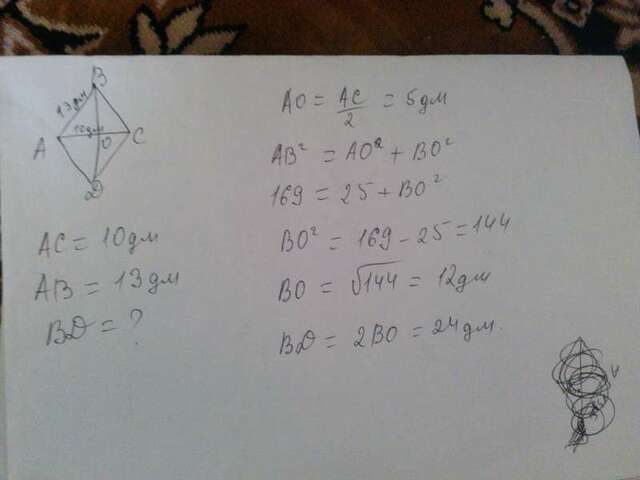 B
13дм
10дм
A
O
C
D
AC = 10дм
AB = 13дм
BD = ?
AO = AC/2 = 5дм
AB² = AO² + BO²
169 = 25 + BO²
BO² = 169 - 25 = 144
BO = √144 = 12дм
BD = 2BO = 24дм.